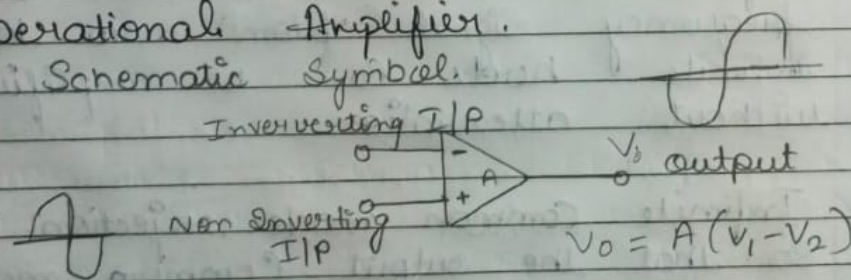 perational Amplifier.
Schematic Symbol.
Inververting I/P
- Vo output
A
+
Non Inverting
I/P
Vo = A (V1-V2)